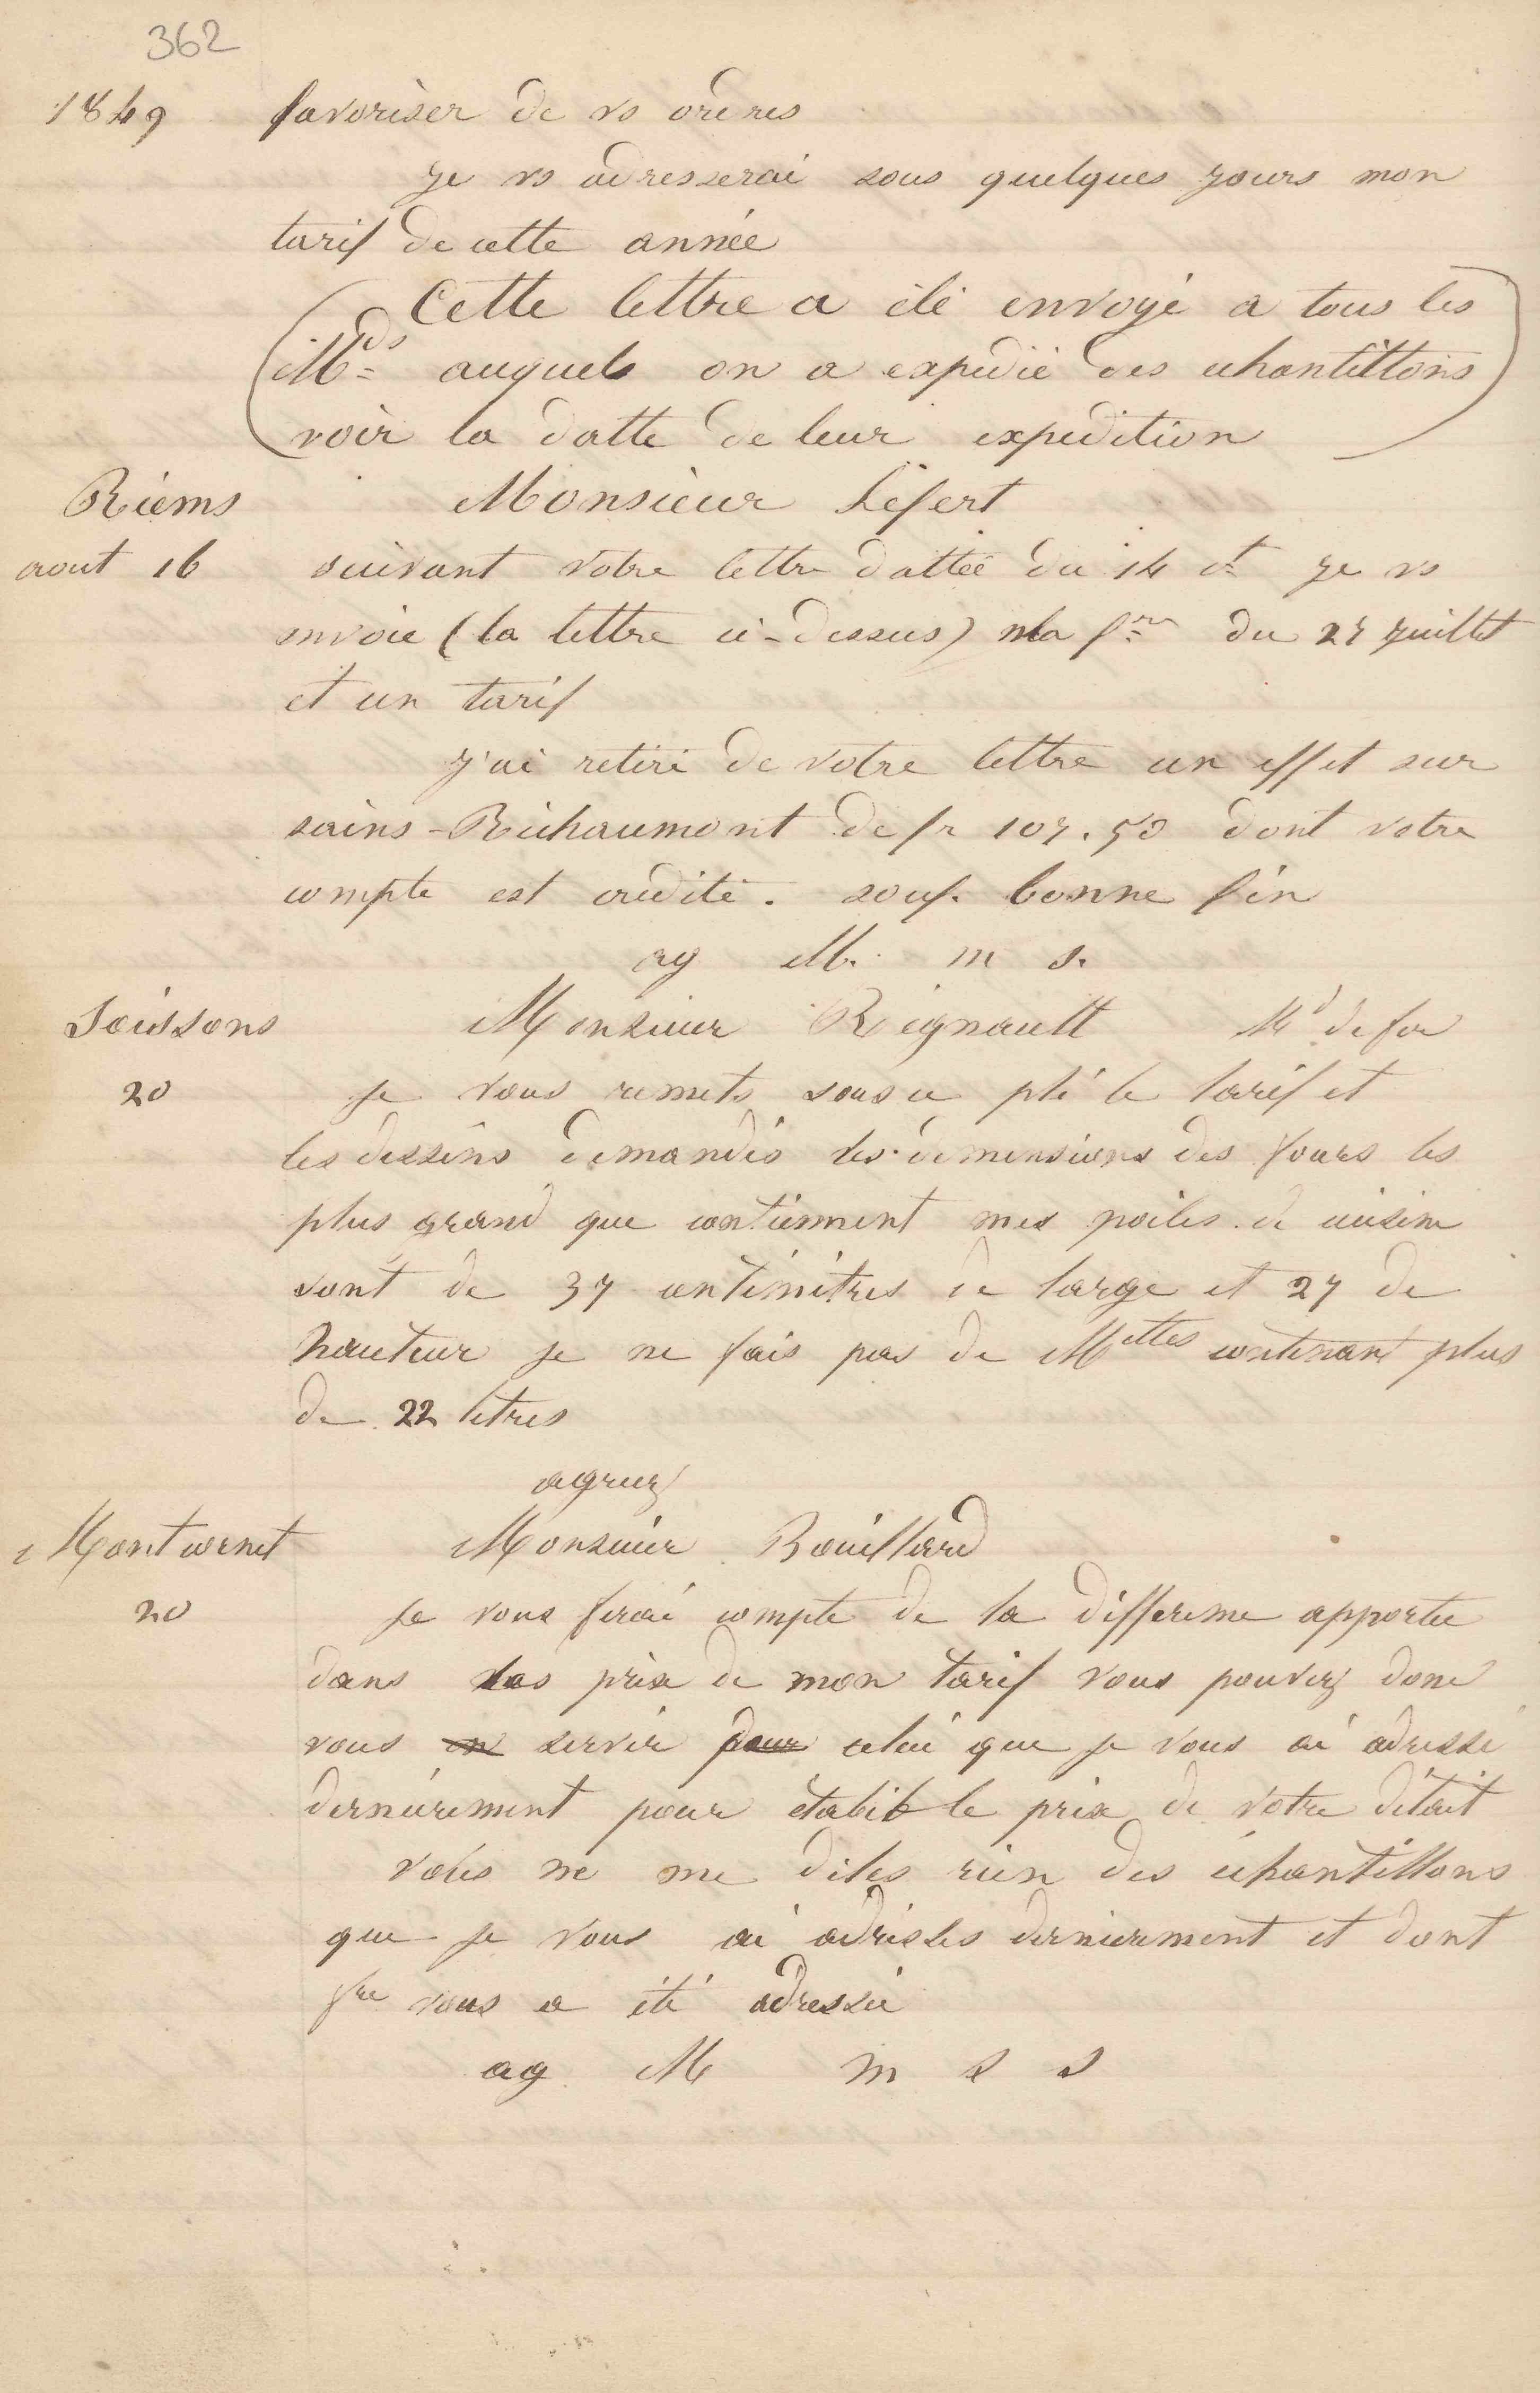 362
1849 favoriser de vs ordres
je vs adresserai sous quelques jours mon
tarif de cette année
(Cette lettre a été envoyé a tous les
Mds auquels on a expedié des echantillons
voir la datte de leur expedition)
Riems Monsieur Lefert
aout 16 suivant votre lettre dattée du 14 ct je vs
envoie (la lettre ci-dessus) ma fre du 27 juillet
et un tarif
j'ai retiré de votre lettre un effet sur
sains-Richaumont de fr 107.50 dont votre
compte est crédité. sauf. bonne fin
ag M. m s.
Soissons Monsieur Regnault Md de fer
20 Je vous remets sous ce pli le tarif et
les dessins demandés les dimensions des fours les
plus grand que contiennent mes poëles de cuisine
sont de 37 centimètres de large et 27 de
hauteur je ne fais pas de Mittes contenant plus
de 22 litres
agreez
Montcornet Monsieur Bouillard
20 Je vous ferai compte de la difference apportée
dans les prix de mon tarif vous pouvez donc
vous en servir pour celui que je vous ai adressé
dernièrement pour établir le prix de votre détail
vous ne me dites rien des échantillons
que je vous ai adressés dernierement et dont
fre vous a été adressée
ag M m s s